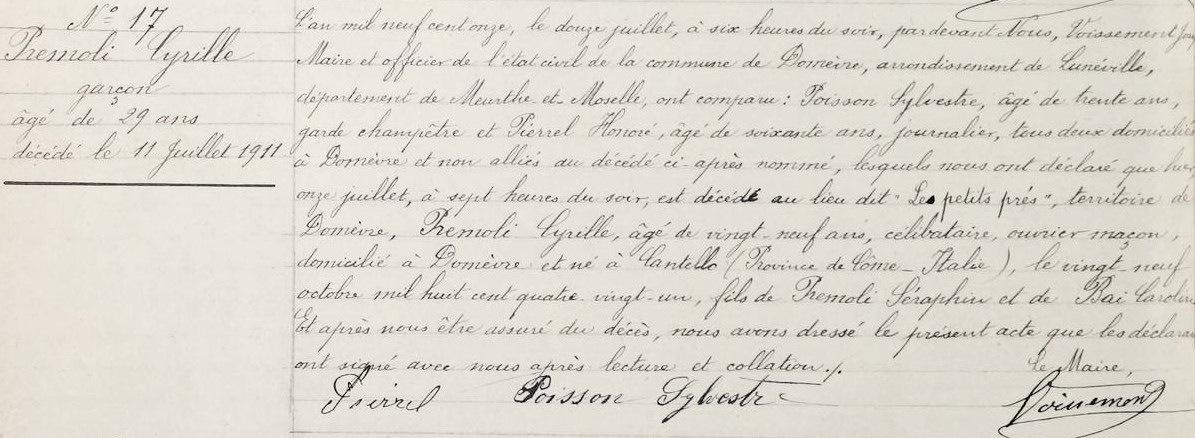 N° 17
Premoli Cyrille
garçon
âgé de 29 ans
décédé le 11 Juillet 1911
L'an mil neuf cent onze, le douze juillet, à six heures du soir, pardevant Nous, Voissement
Maire et officier de l'état civil de la commune de Domèvre, arrondissement de Lunéville,
département de Meurthe-et-Moselle, ont comparu : Poisson Sylvestre, âgé de trente ans,
garde champêtre et Pierrel Honoré, âgé de soixante ans, journalier, tous deux domiciliés
à Domèvre et non alliés au décédé ci-après nommé, lesquels nous ont déclaré que hier
onze juillet, à sept heures du soir, est décédé au lieu dit "Les petits prés", territoire de
Domèvre, Premoli Cyrille, âgé de vingt-neuf ans, célibataire, ouvrier maçon,
domicilié à Domèvre et né à Cantello (Province de Côme - Italie), le vingt-neuf
octobre mil huit cent quatre-vingt-un, fils de Premoli Séraphin et de Bai Caroline
Et après nous être assuré du décès, nous avons dressé le présent acte que les déclarants
ont signé avec nous après lecture et collation ./.
Le Maire,
Pierrel Poisson Sylvestre